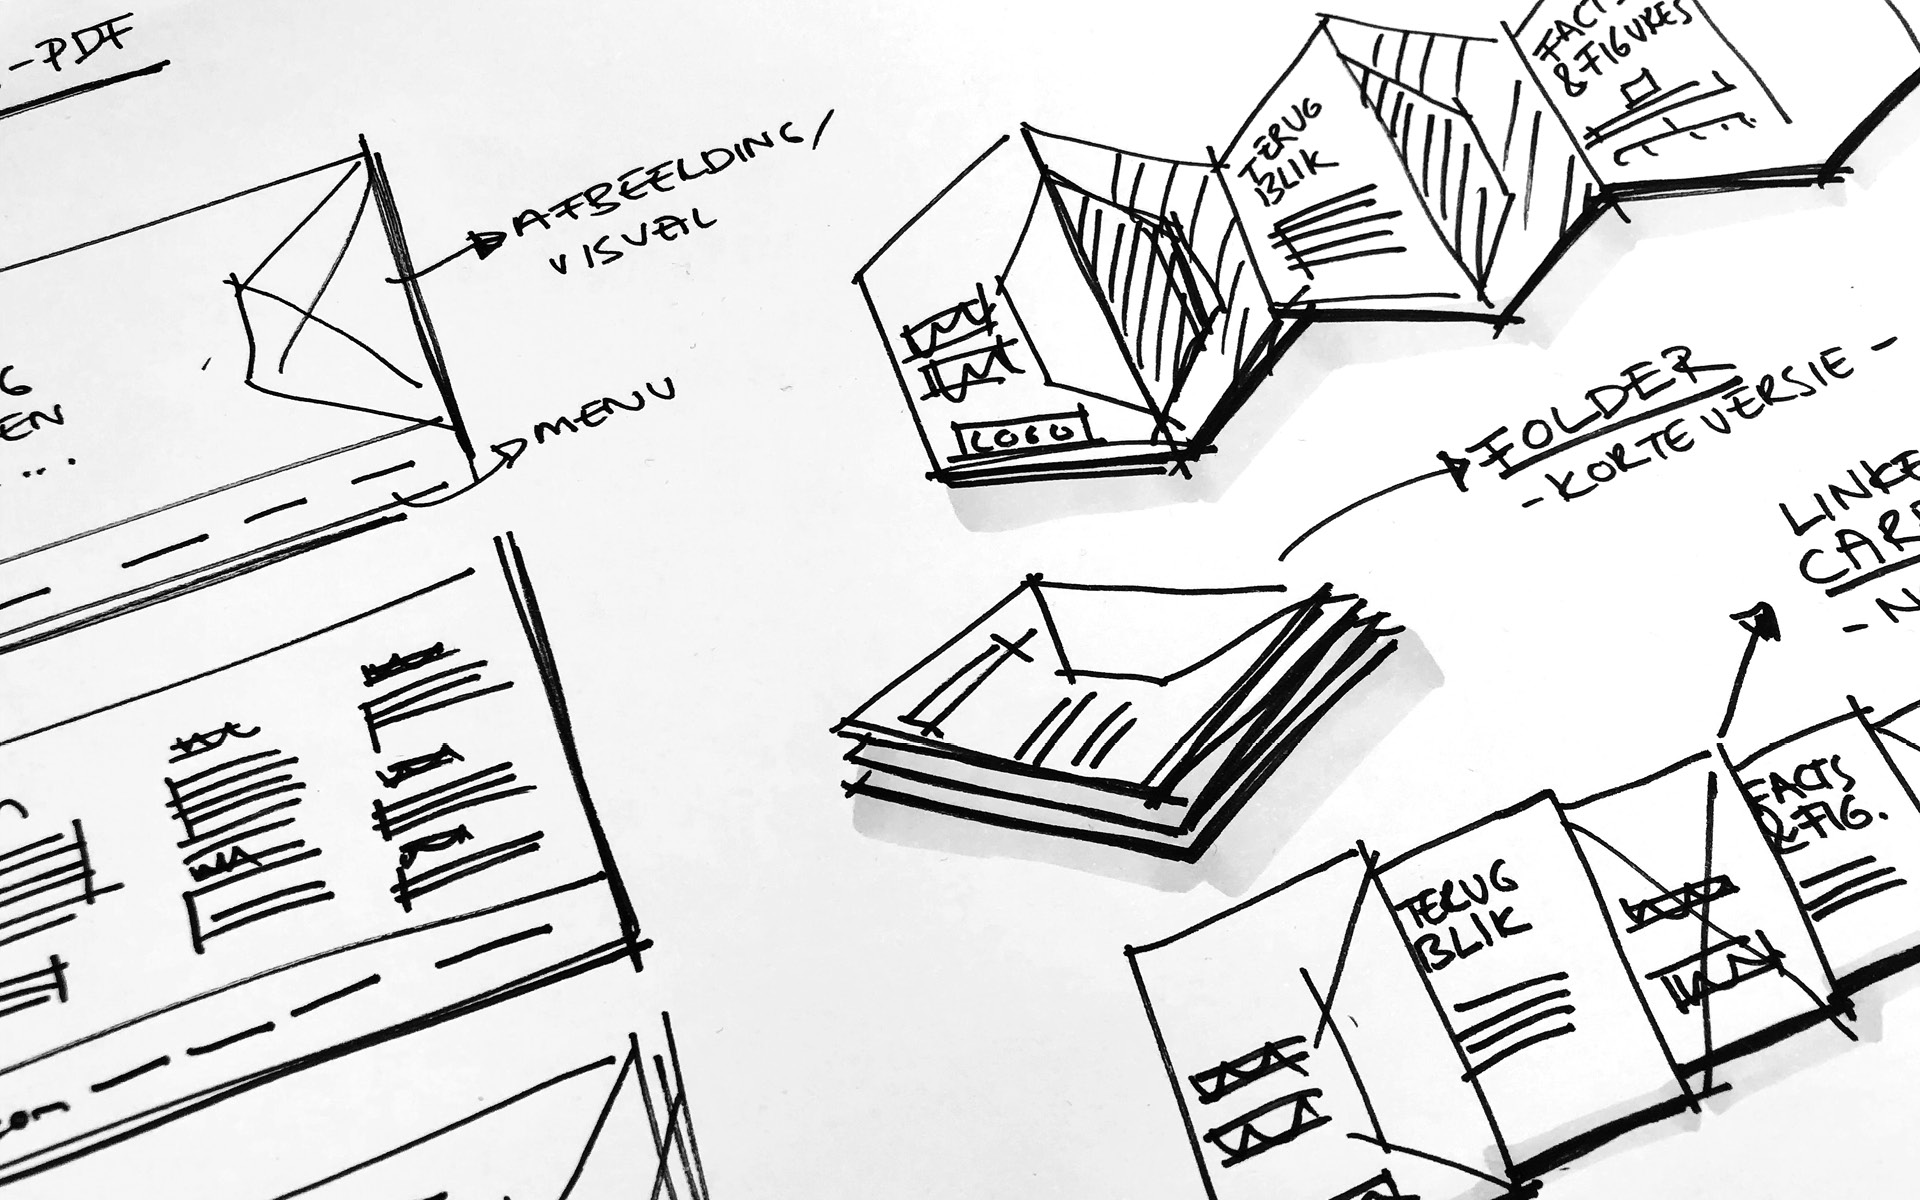 -PDF
AFBEELDING/
VISUAL
MENU
G
EN
...
com
LOGO
TERUG
BLIK
FACTS
& FIGURES
FOLDER
-KORTE VERSIE-
TERUG
BLIK
FACTS
& FIG.